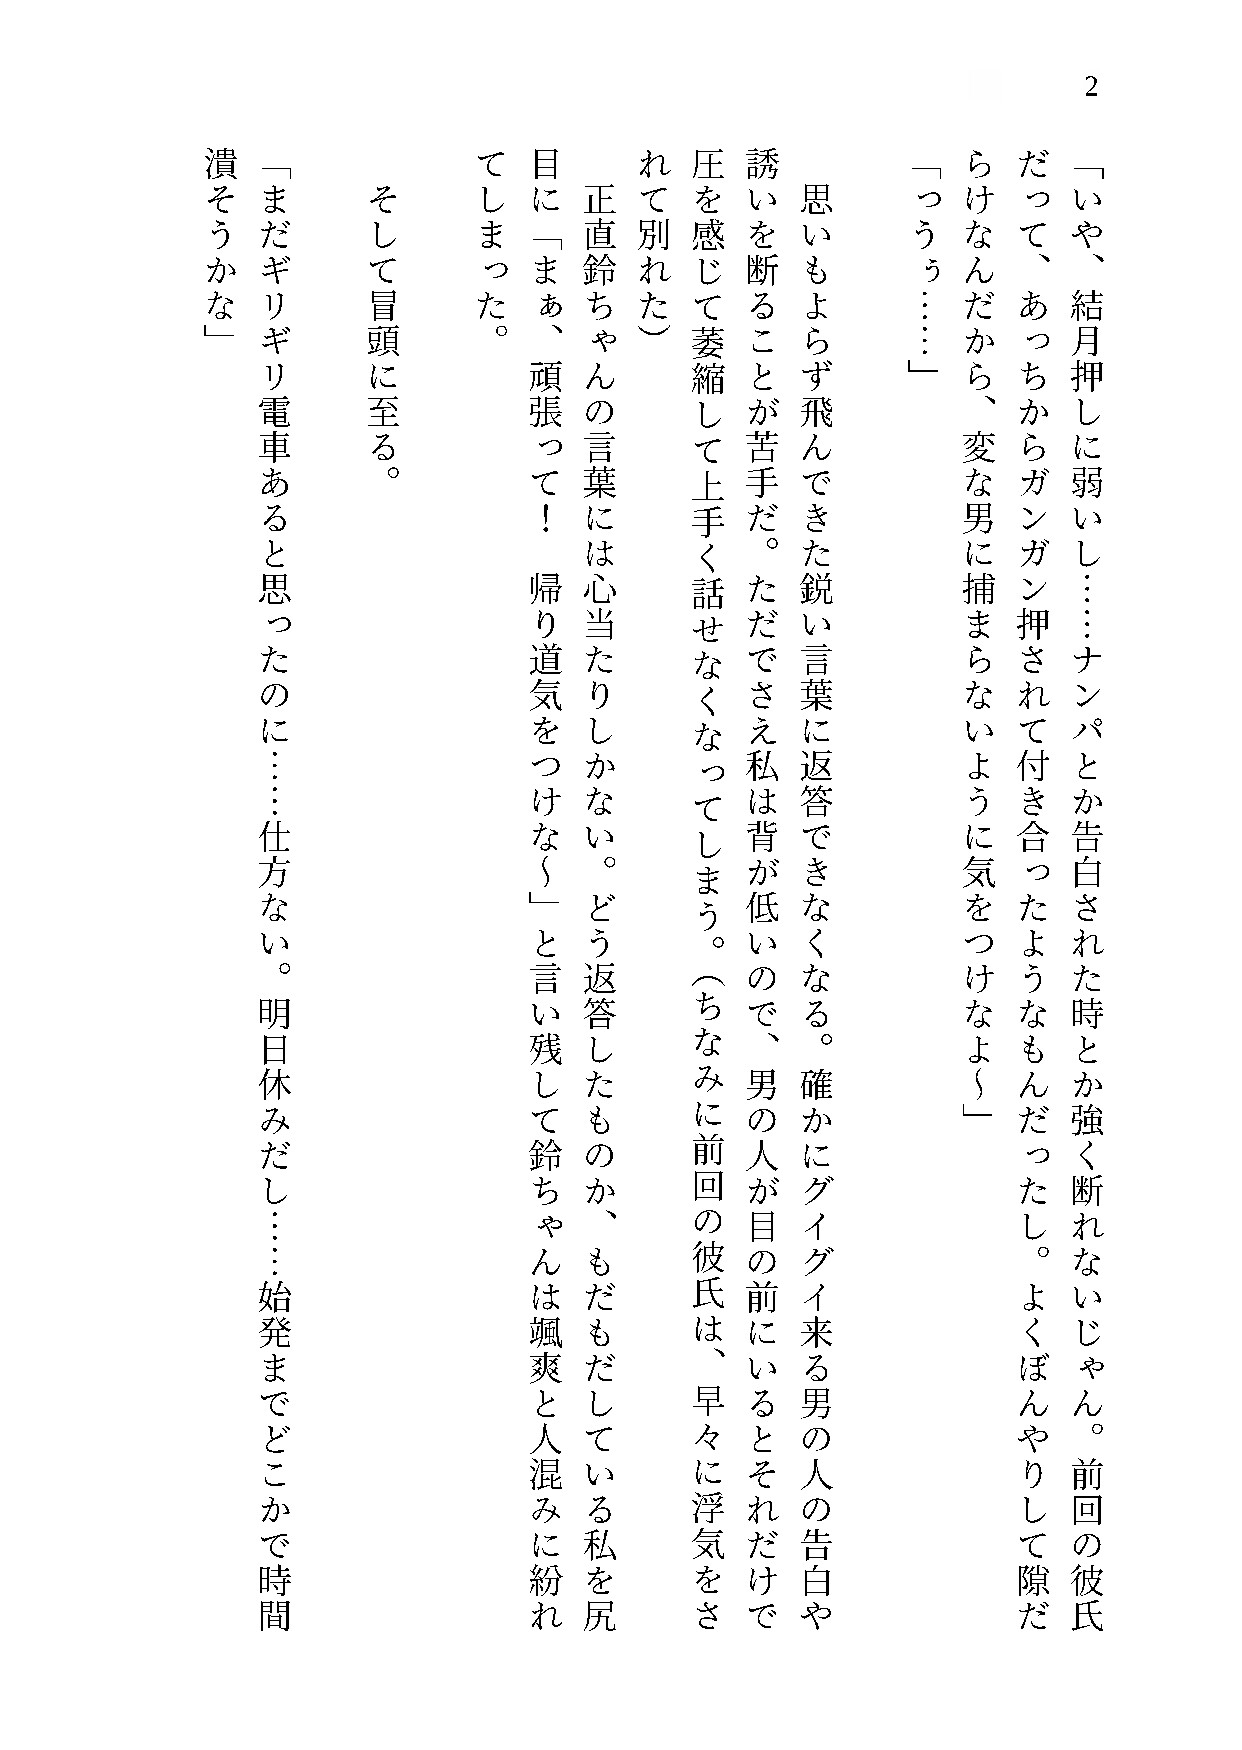 2
「いや、結月押しに弱いし……ナンパとか告白された時とか強く断れないじゃん。前回の彼氏
だって、あっちからガンガン押されて付き合ったようなもんだったし。よくぼんやりして隙だ
らけなんだから、変な男に捕まらないように気をつけなよ〜」
「っうぅ……」
　思いもよらず飛んできた鋭い言葉に返答できなくなる。確かにグイグイ来る男の人の告白や
誘いを断ることが苦手だ。ただでさえ私は背が低いので、男の人が目の前にいるとそれだけで
圧を感じて萎縮して上手く話せなくなってしまう。（ちなみに前回の彼氏は、早々に浮気をさ
れて別れた）
　正直鈴ちゃんの言葉には心当たりしかない。どう返答したものか、もだもだしている私を尻
目に「まぁ、頑張って！　帰り道気をつけな〜」と言い残して鈴ちゃんは颯爽と人混みに紛れ
てしまった。
　そして冒頭に至る。
「まだギリギリ電車あると思ったのに……仕方ない。明日休みだし……始発までどこかで時間
潰そうかな」